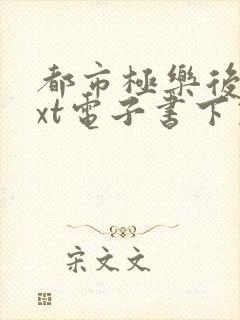 都市極樂後
xt電子書下
宋文文